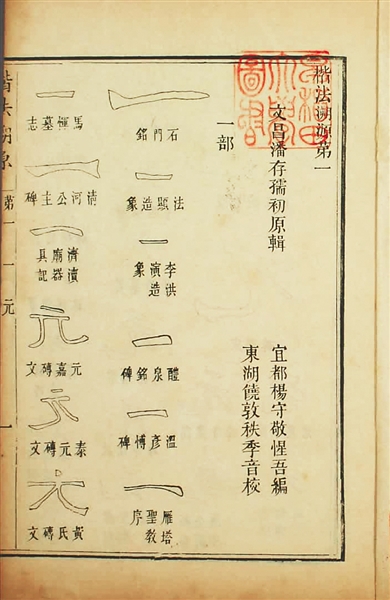 楷法溯源第一
文昌潘存孺初原輯
宜都楊守敬惺吾編
東湖饒敦秩季音校
早稻田大學圖書
一部
一
石門銘
一
法顯造像
一
李洪演造像
一
醴泉銘碑
一
溫彥博碑
一
雁塔聖教序
一
馬墓志
一
清河公主碑
一
濟瀆廟器具記
元
元嘉磚文
元
泰元磚文
元
黃氏磚文
楷法溯源 第一 一 元
一